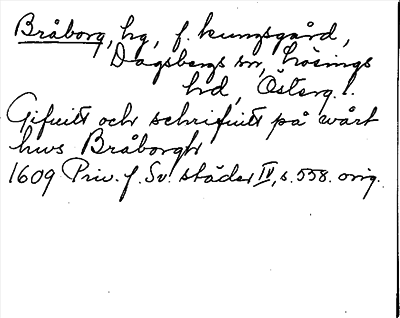 Bråborg, hg, f. kungsgård,
Dagsbergs sn, Lösings
hd, Österg.l.
Gifuitt och schrifuitt på wårt
hws Bråborgh
1609 Priv. f. Sv. städer IV, s. 558. orig.